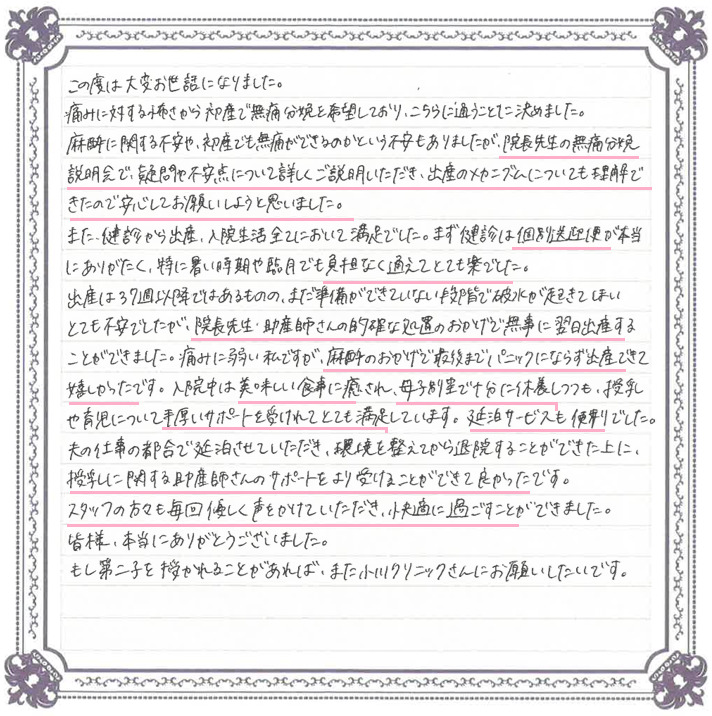 この度は大変お世話になりました。
痛みに対する怖さから初産で無痛分娩を希望しており、こちらに通うことに決めました。
麻酔に関する不安や、初産でも無痛ができるのかという不安もありましたが、院長先生の無痛分娩
説明会で、疑問や不安点について詳しくご説明いただき、出産のメカニズムについても理解で
きたので安心してお願いしようと思いました。
また、健診から出産、入院生活全てにおいて満足でした。まず健診は個別送迎便が本当
にありがたく、特に暑い時期や臨月でも負担なく通えてとても楽でした。
出産は37週以降ではあるものの、まだ準備ができていない段階で破水が起きてしまい
とても不安でしたが、院長先生・助産師さんの的確な処置のおかげで無事に翌日出産する
ことができました。痛みに弱い私ですが、麻酔のおかげで最後までパニックにならず出産できて
嬉しかったです。入院中は美味しい食事に癒され、母子別室で十分に休養しつつも、授乳
や育児について手厚いサポートを受けれてとても満足しています。延泊サービスも便利でした。
夫の仕事の都合で延泊させていただき、環境を整えてから退院することができた上に、
授乳に関する助産師さんのサポートをより受けることができて良かったです。
スタッフの方々も毎回優しく声をかけていただき、快適に過ごすことができました。
皆様、本当にありがとうございました。
もし第二子を授かれることがあれば、また小川クリニックさんにお願いしたいです。